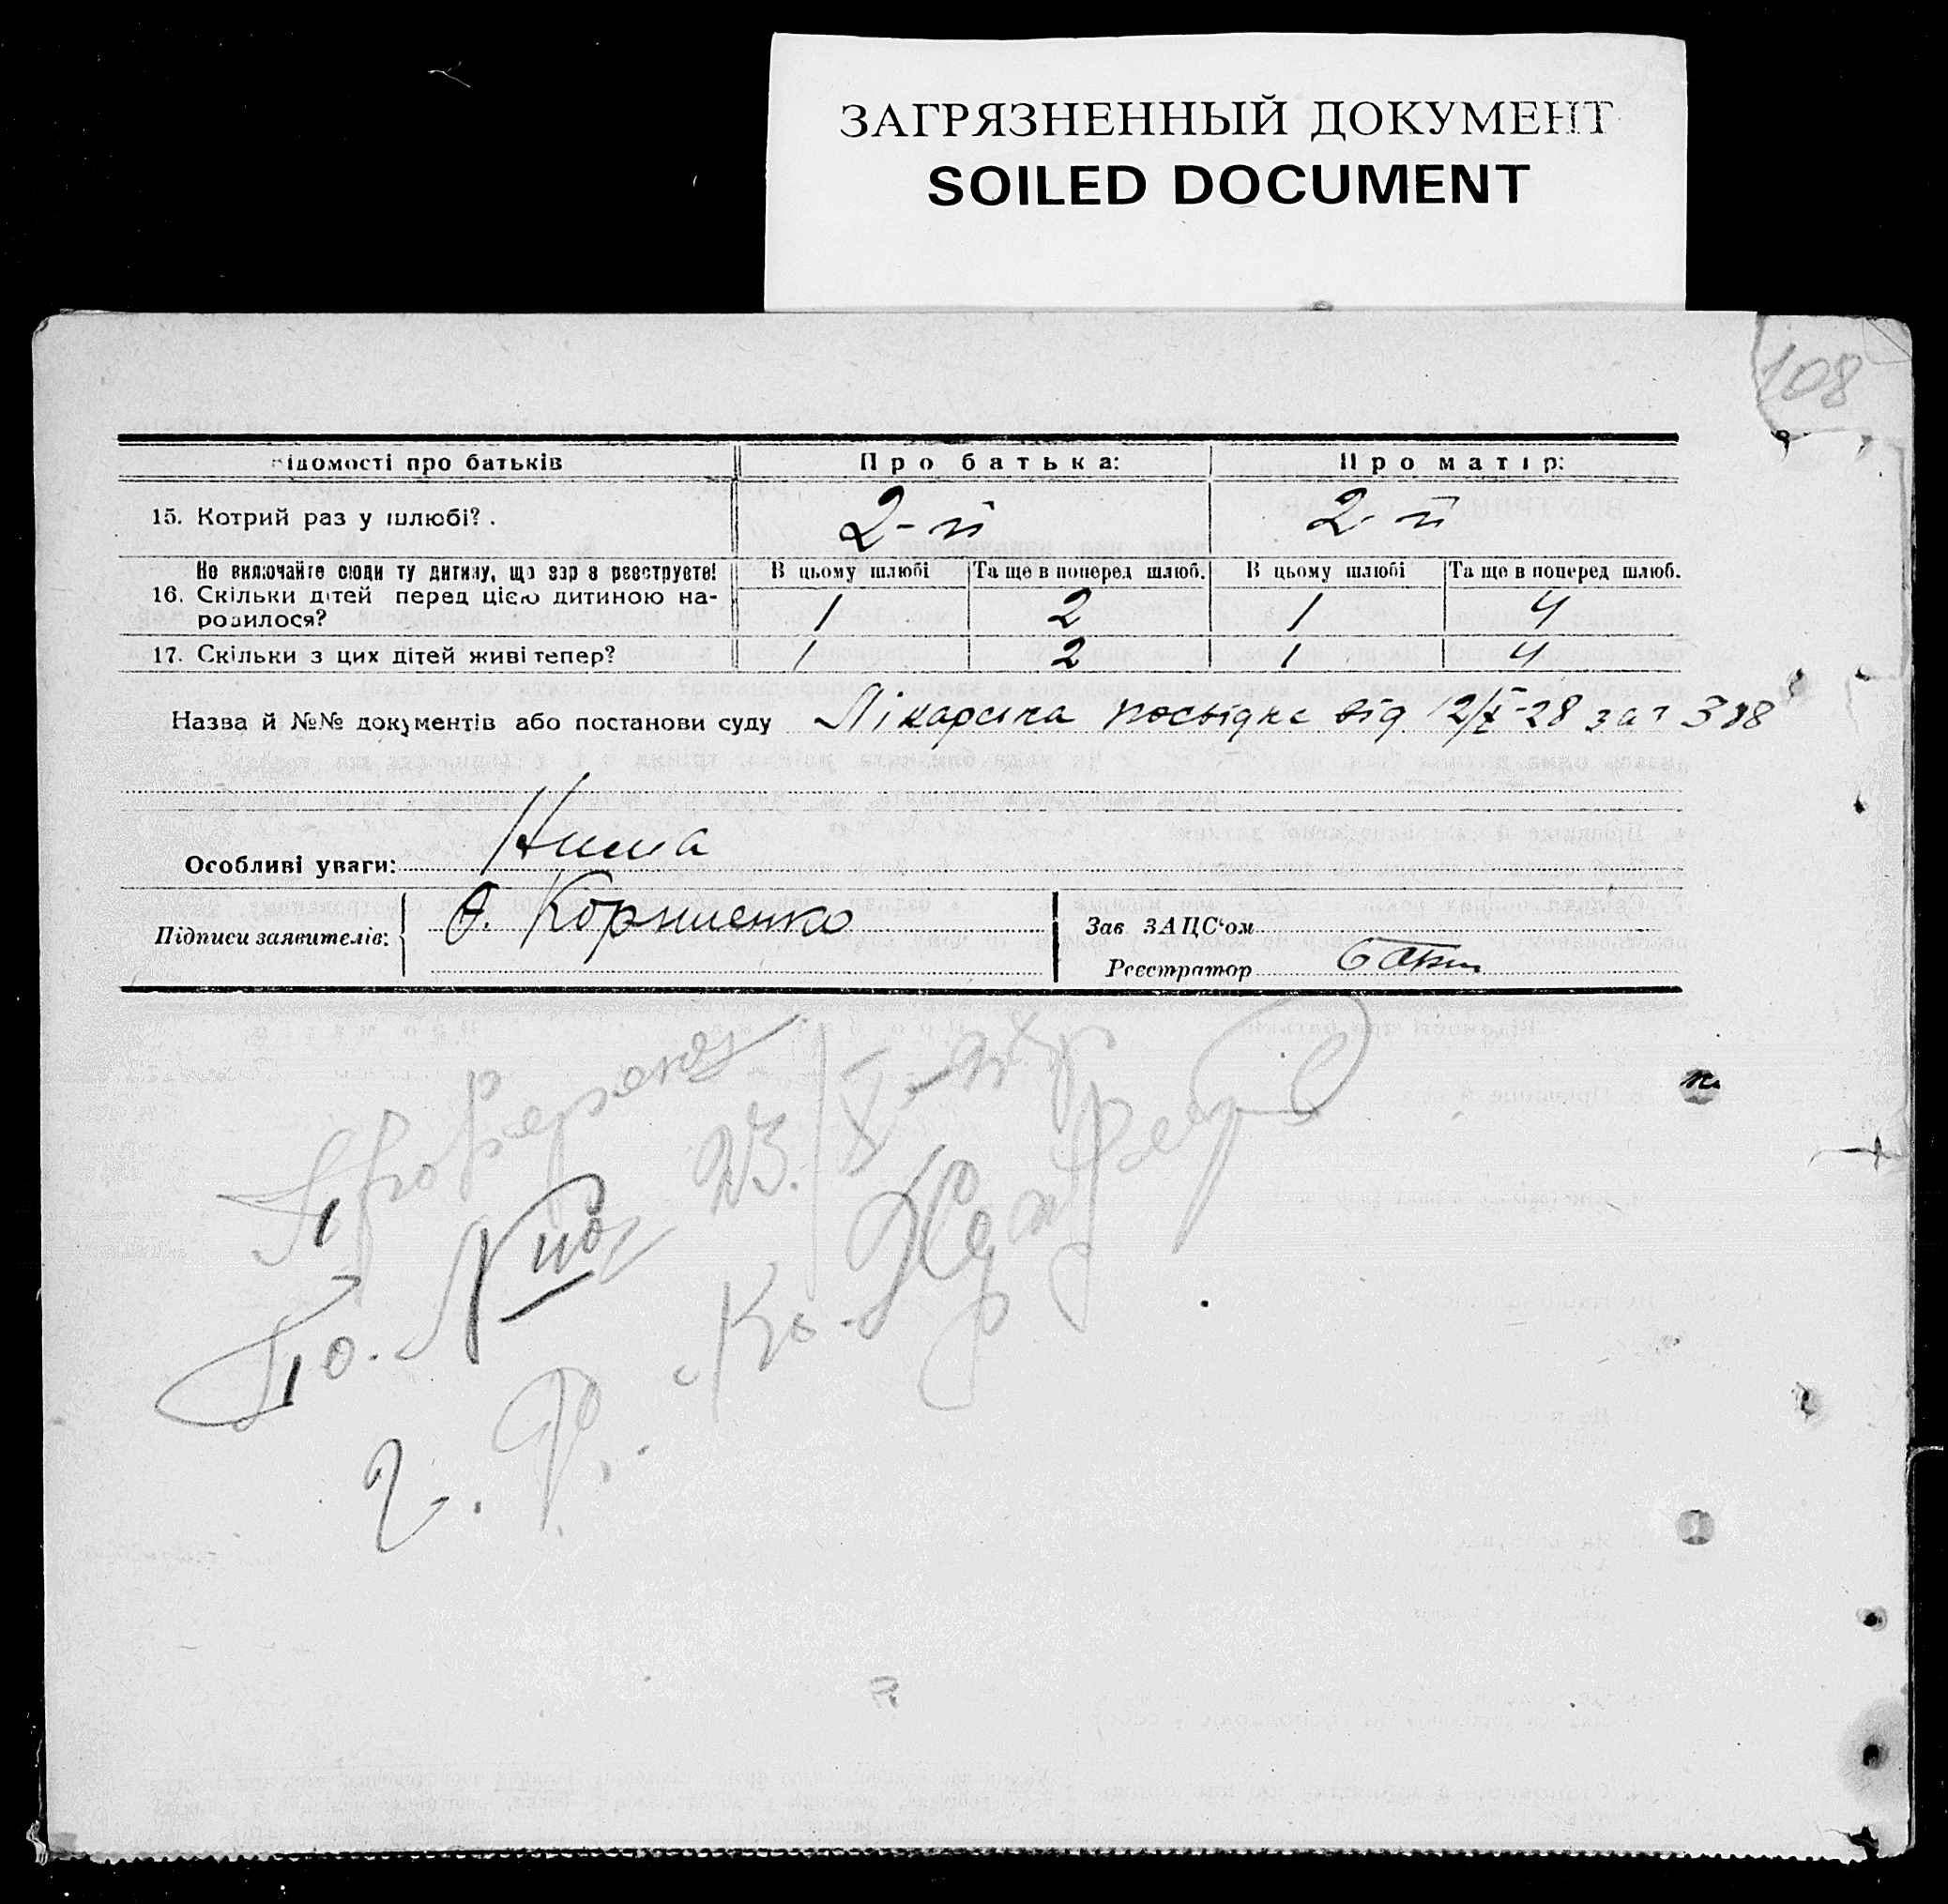 ЗАГРЯЗНЕННЫЙ ДОКУМЕНТ
SOILED DOCUMENT
108
ідомості про батьків Про батька: Про матір:
15. Котрий раз у шлюбі? . 2-й 2-й
Не включайте сюди ту дитину, що зараз реєструєте! В цьому шлюбі Та ще в поперед шлюб. В цьому шлюбі Та ще в поперед шлюб.
16. Скільки дітей перед цією дитиною на-
родилося? 1 2 1 4
17. Скільки з цих дітей живі тепер? 1 2 1 4
Назва й №№ документів або постанови суду Лікарська посвідка від 12/X-28 за № 388
Особливі уваги: Нина
Підписи заявителів: Ф. Корниенко
Зав ЗАЦС'ом
Реєстратор
Проверена
23/X
По. N
2. Р.